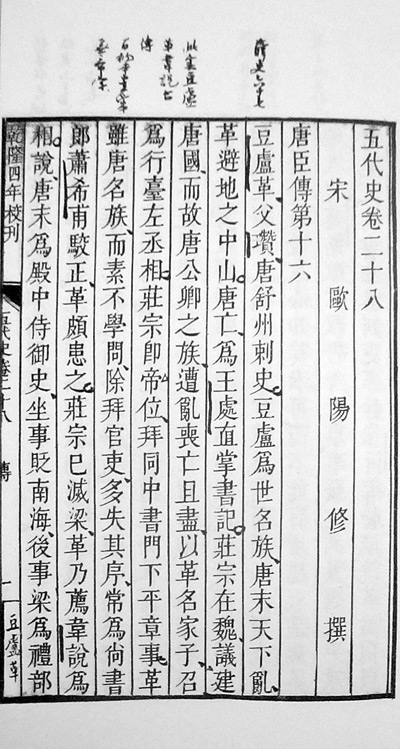 五代史卷二十八
宋 歐 陽 修 撰
唐臣傳第十六
豆盧革父瓚唐舒州刺史豆盧爲世名族唐末天下亂
革避地之中山唐亡爲王處直掌書記莊宗在魏議建
唐國而故唐公卿之族遭亂喪亡且盡以革名家子召
爲行臺左丞相莊宗卽帝位拜同中書門下平章事革
雖唐名族而素不學問除拜官吏多失其序常爲尚書
郎蕭希甫駮正革頗患之莊宗已滅梁革乃薦韋說爲
相說唐末爲殿中侍御史坐事貶南海後事梁爲禮部
乾隆四年校刊 五代史卷二十八 傳 一 豆盧革